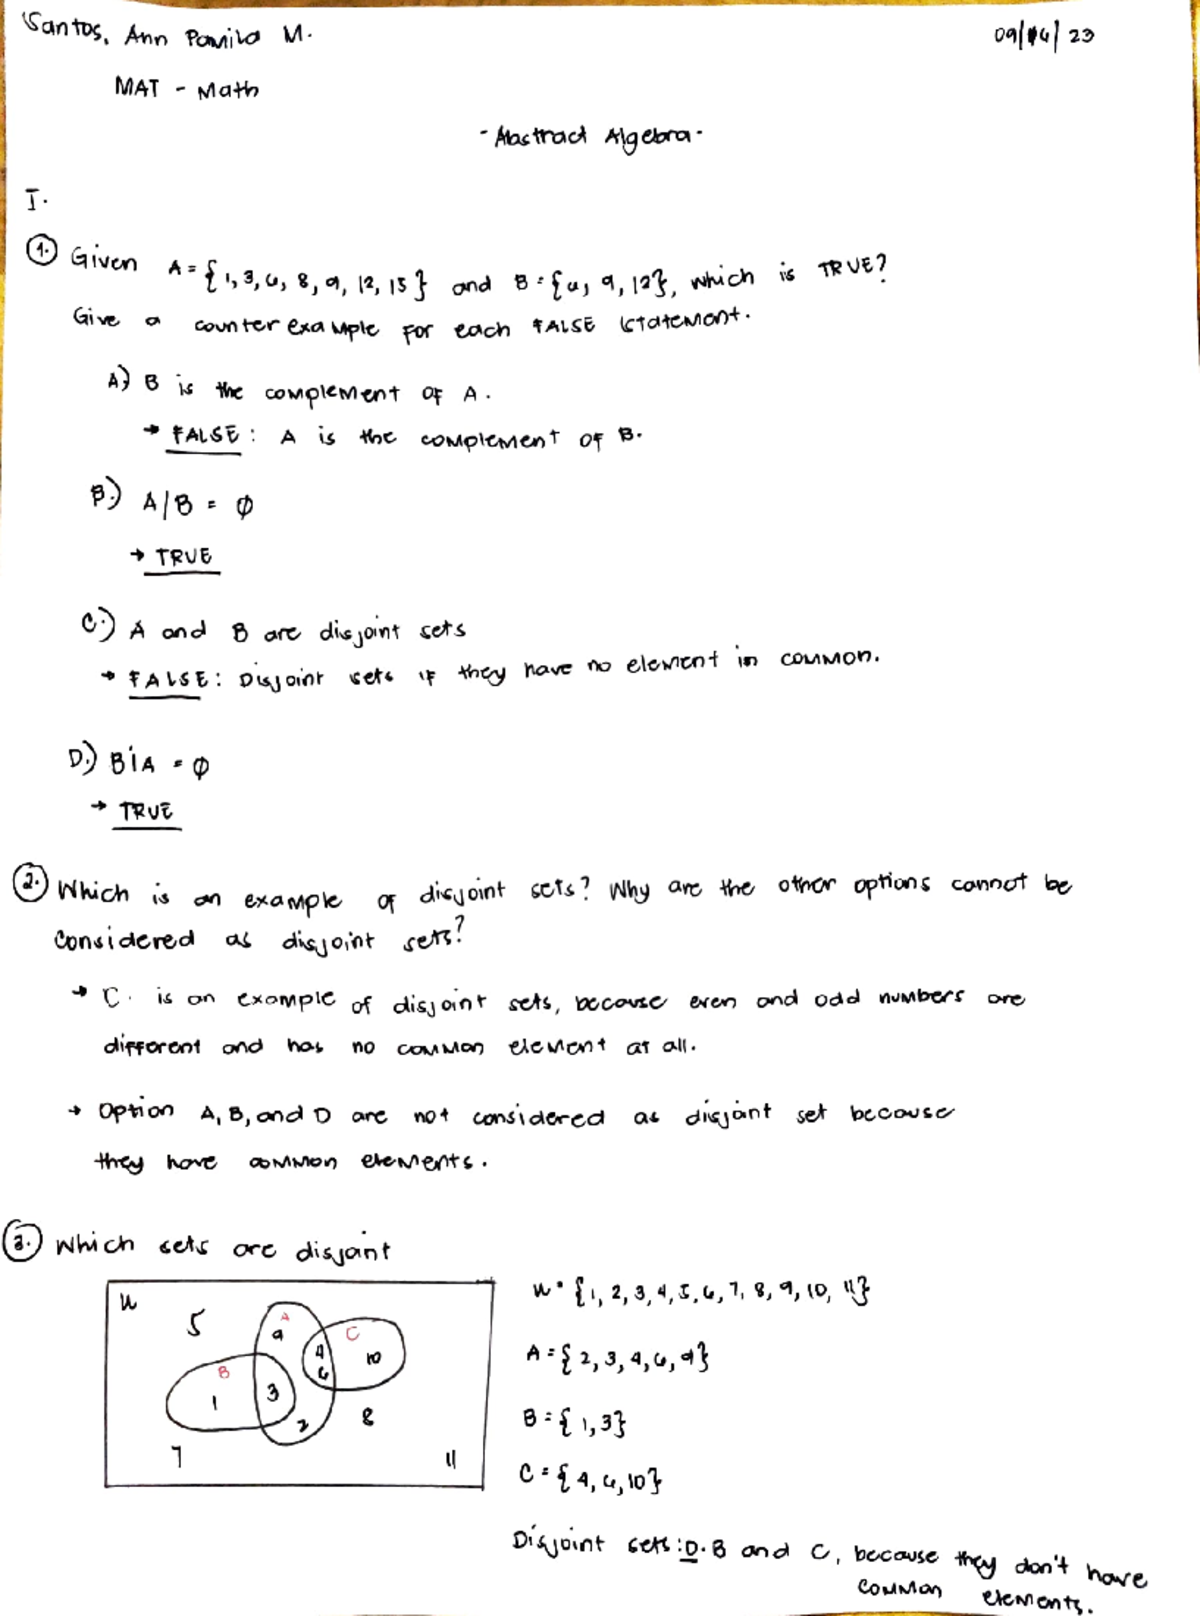 Santos, Ann Pamila M.
09/06/23
MAT - Math
- Abstract Algebra -
I.
1. Given A = {1, 3, 6, 8, 9, 12, 15} and B = {6, 9, 12}, which is TRUE?
Give a counter example for each FALSE statement.
A.) B is the complement of A.
→ FALSE: A is the complement of B.
B.) A/B = ∅
→ TRUE
C.) A and B are disjoint sets
→ FALSE: Disjoint sets if they have no element in common.
D.) B\A = ∅
→ TRUE
2. Which is an example of disjoint sets? Why are the other options cannot be
considered as disjoint sets?
→ C. is an example of disjoint sets, because even and odd numbers are
different and has no common element at all.
→ Option A, B, and D are not considered as disjoint set because
they have common elements.
3. Which sets are disjoint
U
5
A
9
C
4
6
10
B
1
3
2
8
7
11
U = {1, 2, 3, 4, 5, 6, 7, 8, 9, 10, 11}
A = {2, 3, 4, 6, 9}
B = {1, 3}
C = {4, 6, 10}
Disjoint sets: D. B and C, because they don't have
common elements.